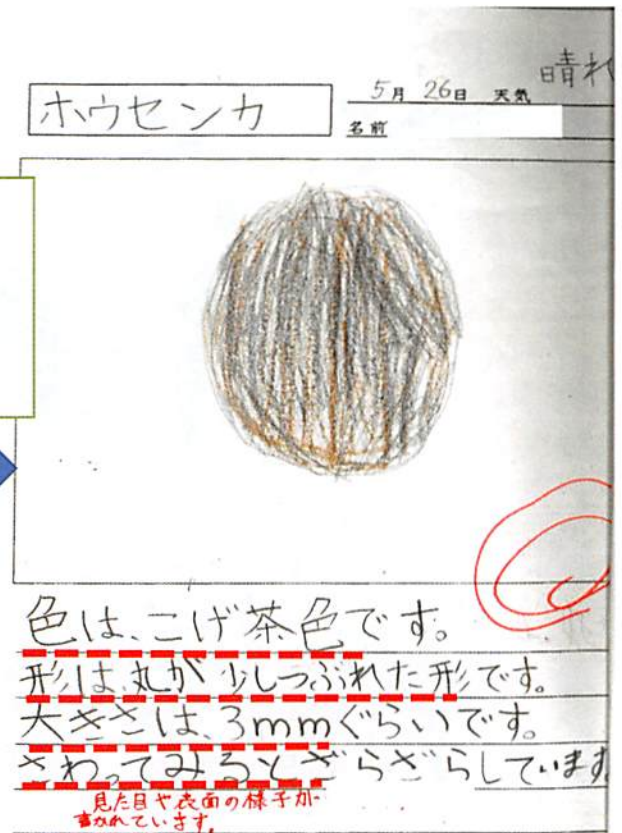 晴れ
ホウセンカ
5月 26日 天気
名前
色は、こげ茶色です。
形は、丸が少しつぶれた形です。
大きさは、3mmぐらいです。
さわってみるとざらざらしています
見た目や表面の様子が
書かれています。